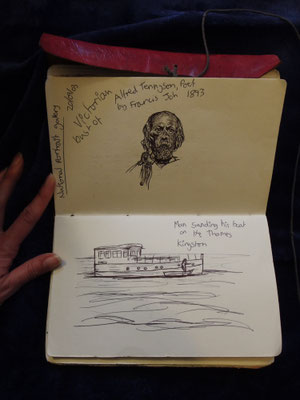 Alfred Tennyson, Poet
by Francis 1893
Victorian
National Portrait Gallery
Man sanding his boat
on the Thames
Kingston